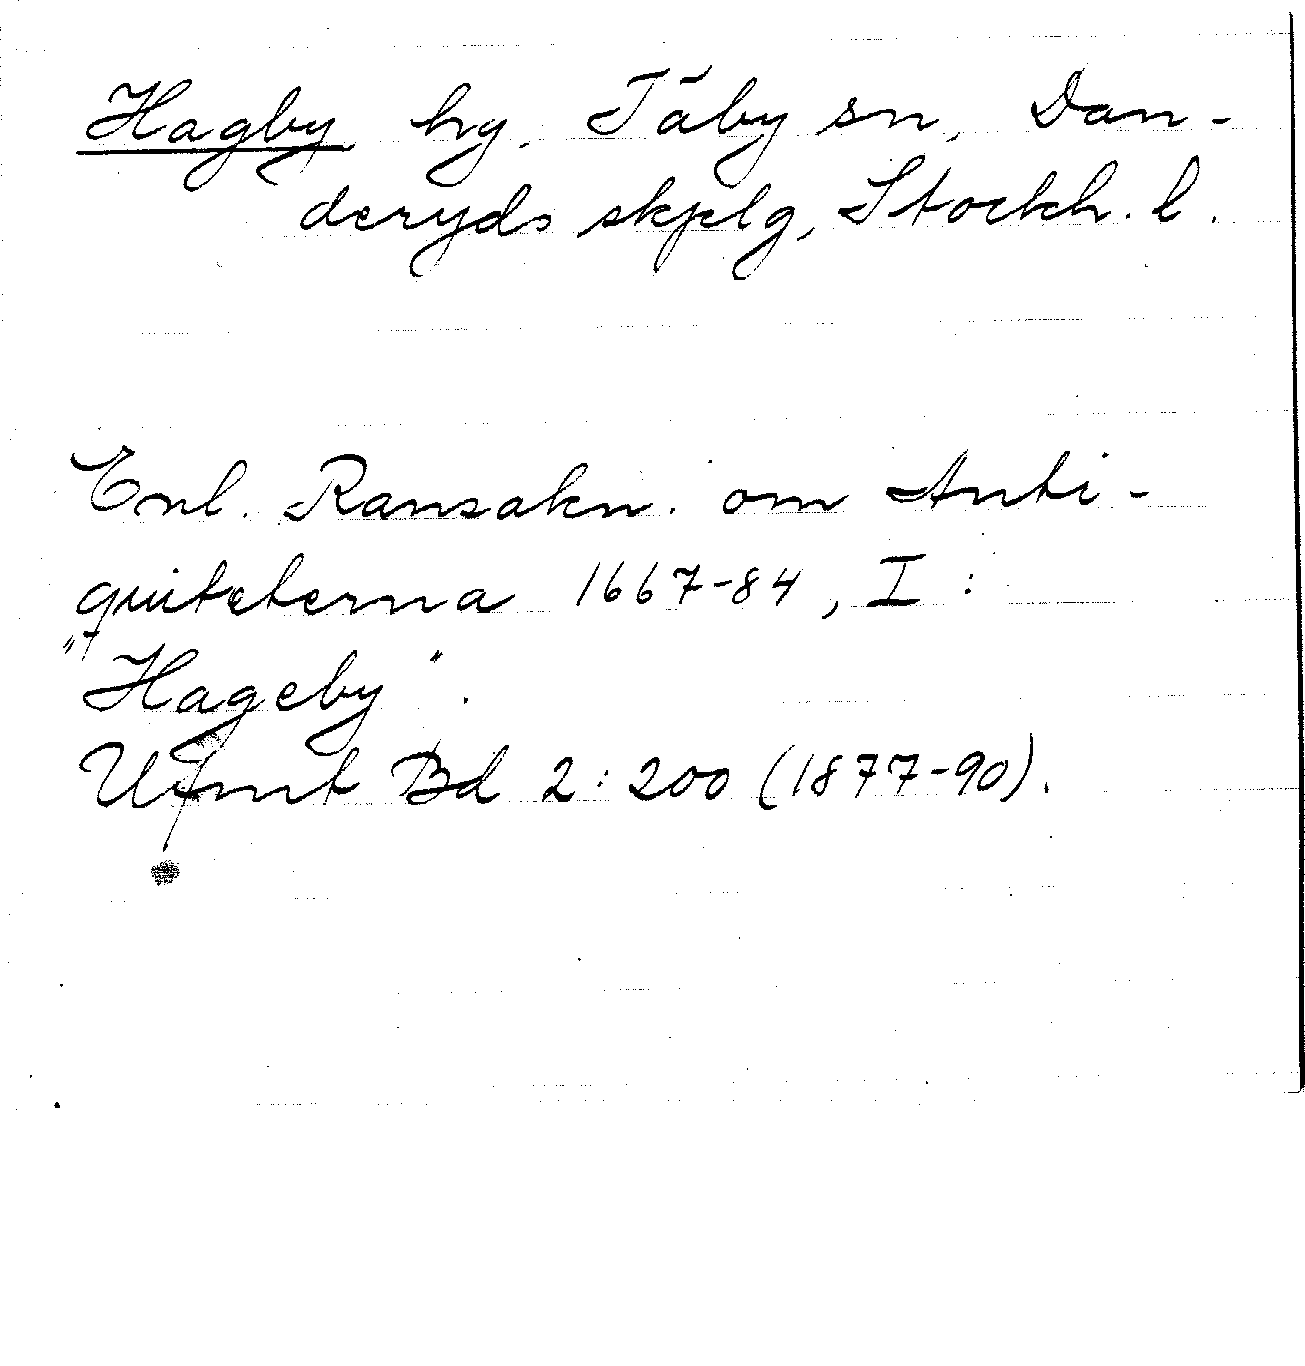 Hagby hg, Täby sn, Dan-
deryds skplg, Stockh. l.
Enl. Ransakn. om Anti-
quiteterna 1667-84, I:
"Hageby".
Ufmt Bd 2:200 (1877-90).